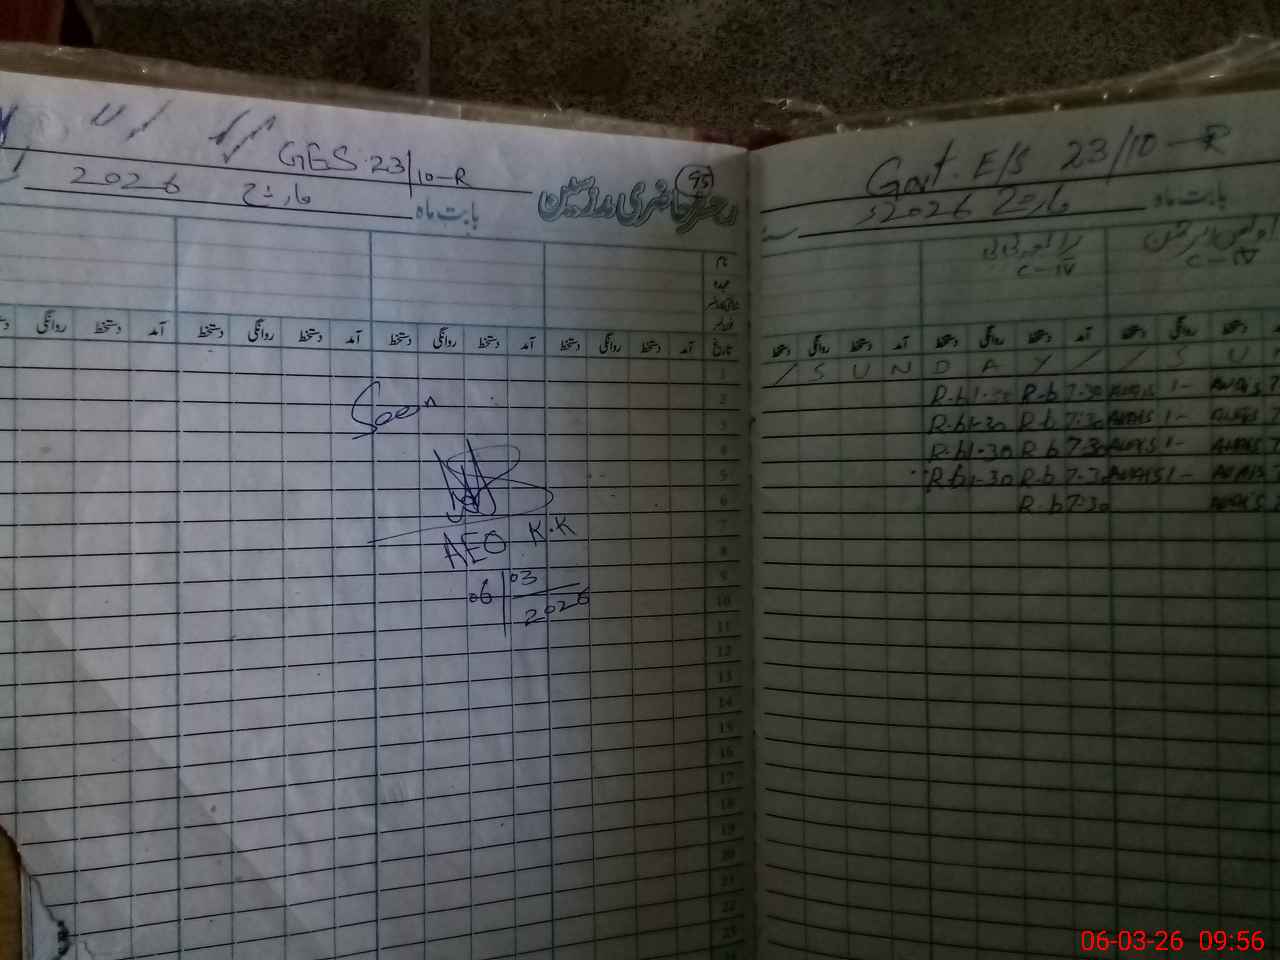 GES 23/10-R
95
رجسٹر حاضری مدرسین
بابت ماہ مارچ 2026
نام
عہدہ
تاریخ آمد دستخط روانگی دستخط آمد دستخط روانگی دستخط آمد دستخط روانگی دستخط آمد دستخط روانگی
1
2
3
4
5
6
7
8
9
10
11
12
13
14
15
16
17
18
19
20
21
22
23
Seen
AEO K.K
06/03/2026
Govt. E/S 23/10-R
بابت ماہ مارچ 2026
C-IV
C-IV
دستخط روانگی دستخط آمد دستخط روانگی دستخط آمد دستخط روانگی دستخط
/ S U N D A Y / / S U
R.b 1-30 R.b 7-30 AWAIS 1- AWAIS
R.b 1-30 R.b 7-30 AWAIS 1- AWAIS
R.b 1-30 R.b 7-30 AWAIS 1- AWAIS
R.b 1-30 R.b 7-30 AWAIS 1- AWAIS
R.b 7-30 AWAIS
06-03-26 09:56